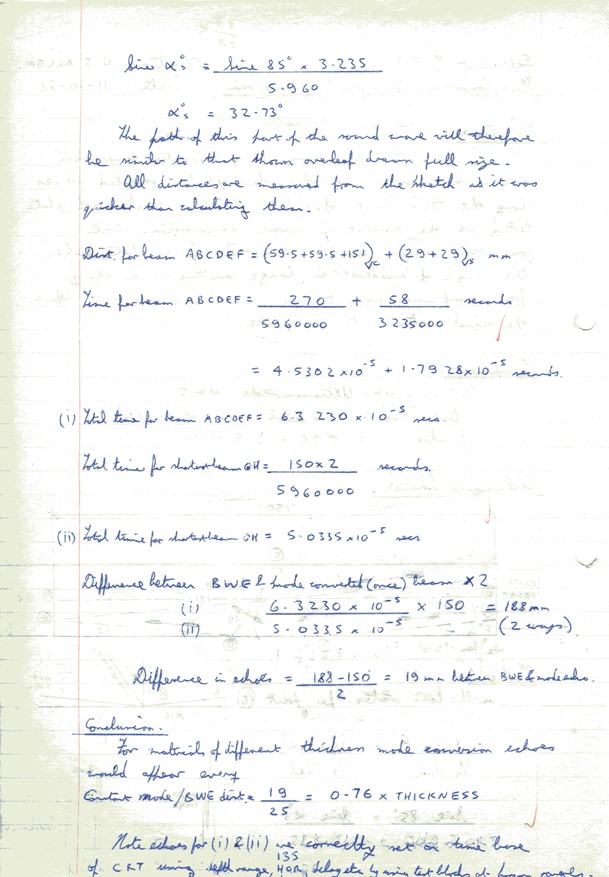 Sine α°s = Sine 85° x 3.235
5.960
α°s = 32.73°
The path of this part of the sound wave will therefore
be similar to that shown overleaf drawn full size.
All distances are measured from the sketch as it was
quicker than calculating them.
Dist. for beam ABCDEF = (59.5+59.5+151)c + (29+29)s mm
Time for beam ABCDEF = 270 + 58 seconds
5960000 3235000
= 4.5302 x10⁻⁵ + 1.7928x10⁻⁵ seconds.
(i) Total time for beam ABCDEF = 6.3230 x 10⁻⁵ secs.
Total time for shortest beam GH = 150x2 seconds.
5960000
(ii) Total time for shortest beam GH = 5.0335x10⁻⁵ secs
Difference between BWE & mode converted (once) beam x2
(i) 6.3230 x 10⁻⁵ x 150 = 188mm
(ii) 5.0335 x 10⁻⁵ (2 ways)
Difference in echoes = 188-150 = 19 mm between BWE & mode echo.
2
Conclusion.
For materials of different thickness mode conversion echoes
would appear every
Constant mode/BWE dist. = 19 = 0.76 x THICKNESS
25
Note echoes for (i) & (ii) are correctly set on time base
135
of CRT using depth range, HOR, delay etc by using test blocks of known